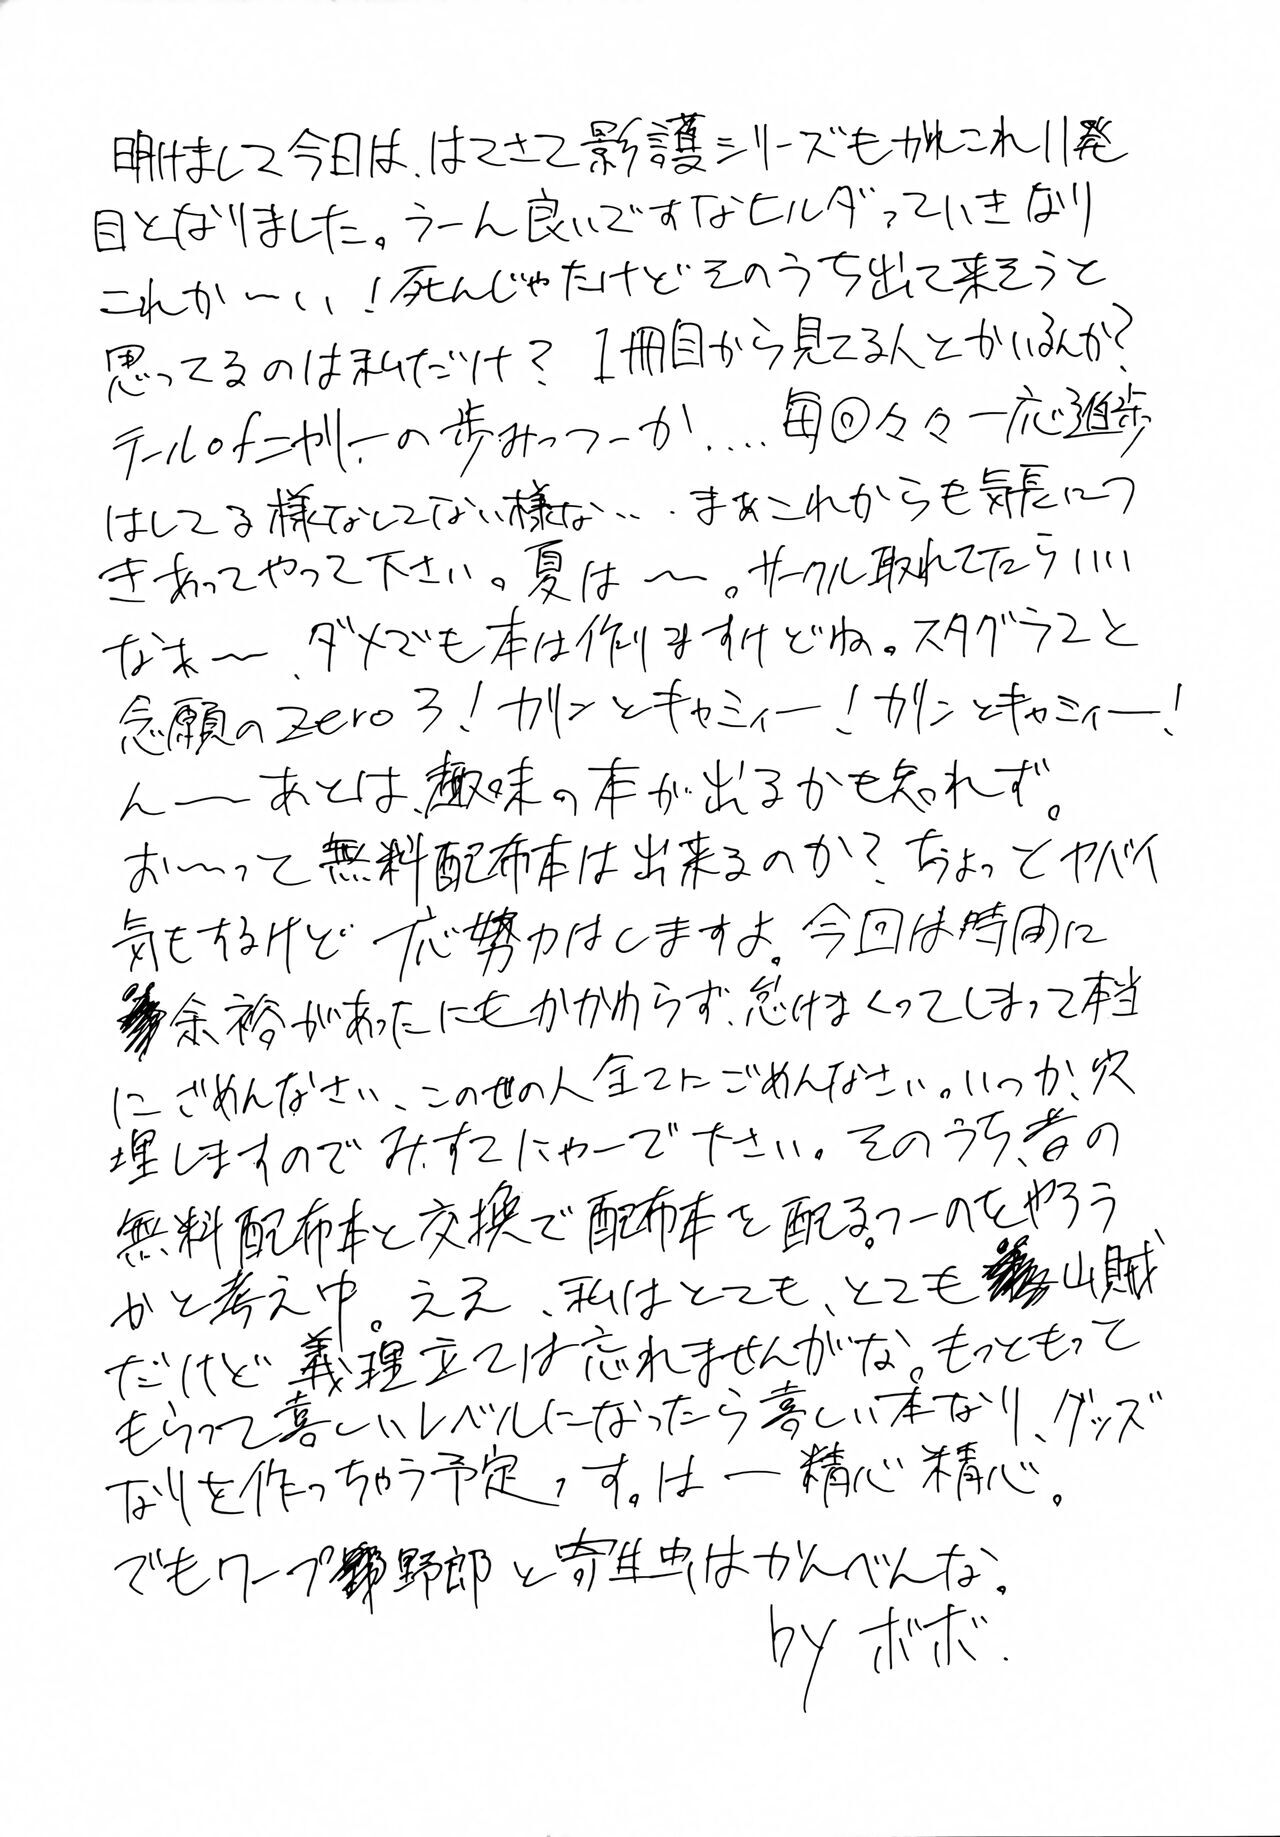 明けまして今日は、はてさて影護シリーズもかれこれ11発
目となりました。うーん良いですなヒルダっていきなり
これか〜い!死んじゃたけどそのうち出て来そうと
思ってるのは私だけ?1冊目から見てる人とかいるんか?
テールofニヤリーの歩みっつーか....毎回々々一応進歩
はしてる様なしてない様な...まあこれからも気長につ
きあってやって下さい。夏は〜。サークル取れてたらいい
なぁ〜、ダメでも本は作りますけどね。スタグラ2と
念願のzero3!カリンとキャミィー!カリンとキャミィー!
ん〜あとは、趣味の本が出るかも知れず。
お〜って無料配布本は出来るのか?ちょっとヤバイ
気もするけど一応努力はしますよ。今回は時間に
余裕があったにもかかわらず、怠けまくってしまって本当
にごめんなさい、この世の人全てにごめんなさい。いつか、穴
埋しますのでみすてにゃーで下さい。そのうち、昔の
無料配布本と交換で配布本を配る。つーのをやろう
かと考え中。ええ、私はとても、とても山賊
だけど義理立ては忘れませんがな。もっともって
もらって喜しいレベルになったら喜しい本なり、グッズ
なりを作っちゃう予定っす。は一精心精心。
でもワープ野郎と寄生虫はかんべんな。
by ボボ.